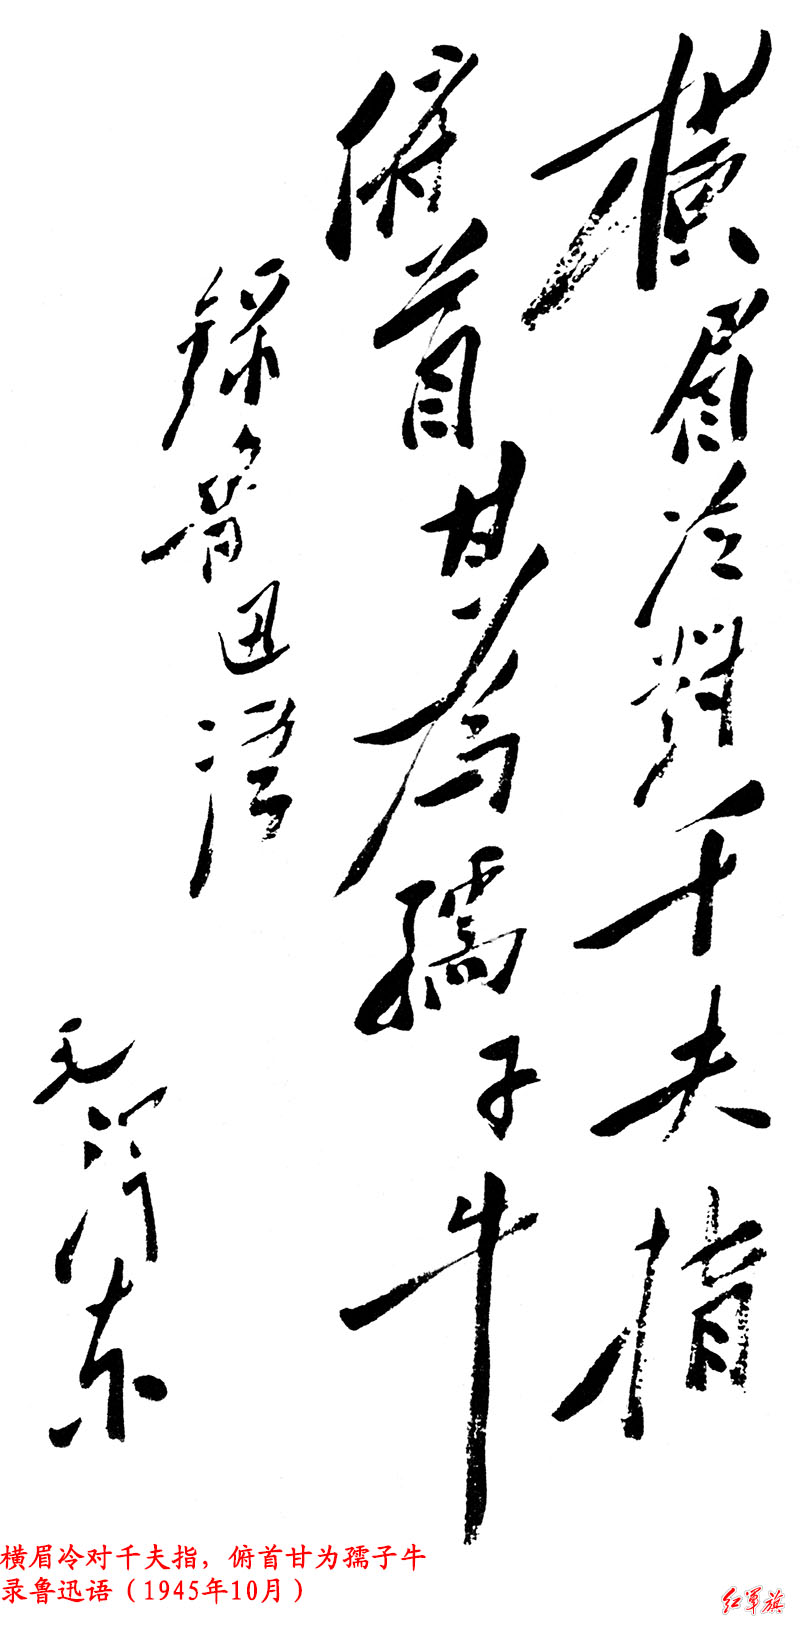 横眉冷對千夫指
俯首甘為孺子牛
錄魯迅語
毛澤东
横眉冷对千夫指，俯首甘为孺子牛
录鲁迅语（1945年10月）
红军旗